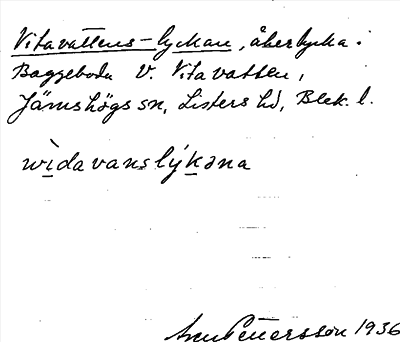 Vitavattens-lyckan, åkerlycka i
Baggeboda V. Vitavatten,
Jämshögs sn, Listers hd, Blek. l.
wìdavanslýkəna
Pettersson 1936